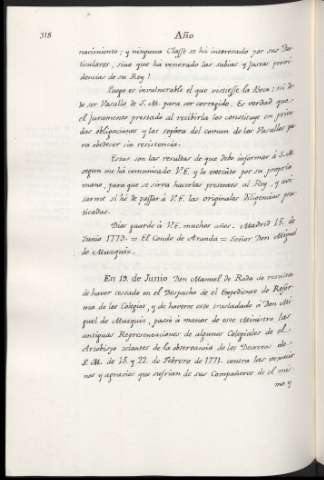 318 Año
nacimiento; y ninguna Clase se há interesado por sus Par-
ticulares, sino que há venerado las sabias y justas provi-
dencias de su Rey!
Luego es invulnerable el que vistesse la Beca: ni de-
be ser Vasallo de S. M. para ser corregido. Es verdad que
el juramento prestado al recibirla los constituye en
das obligaciones y los separa del comun de los Vasallos pa-
ra obedecer sin resistencia.
Estas son las resultas de que debo informar á S. M.
segun me há comunicado V. E. y lo executo por su propria
mano, para que se sirva hacerlas presentes al Rey, y avi-
sarme si hé de passar á V. E. las originales diligencias prac-
ticadas.
Dios guarde á V. E. muchos años. Madrid 15. de
Junio 1773. = El Conde de Aranda = Señor Don Miguel
de Muzquiz.
En 19. de Junio Don Manuel de Roda se
de haver cesado en el Despacho de el Expediente de Refor-
ma de los Colegios, y de haverse este trasladado á Don Mi-
guel de Muzquiz, pasó á manos de este Ministro las
antiguas Representaciones de algunos Colegiales de el
Arzobispo zelantes de la observancia de los Decretos de
S. M. de 15. y 22. de Febrero de 1771. contra las vexacio-
nes y agravios que sufrian de sus Compañeros de el mis-
mo y